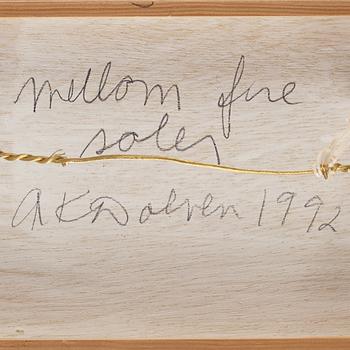 mellom fire
soler
A K Dolven 1992